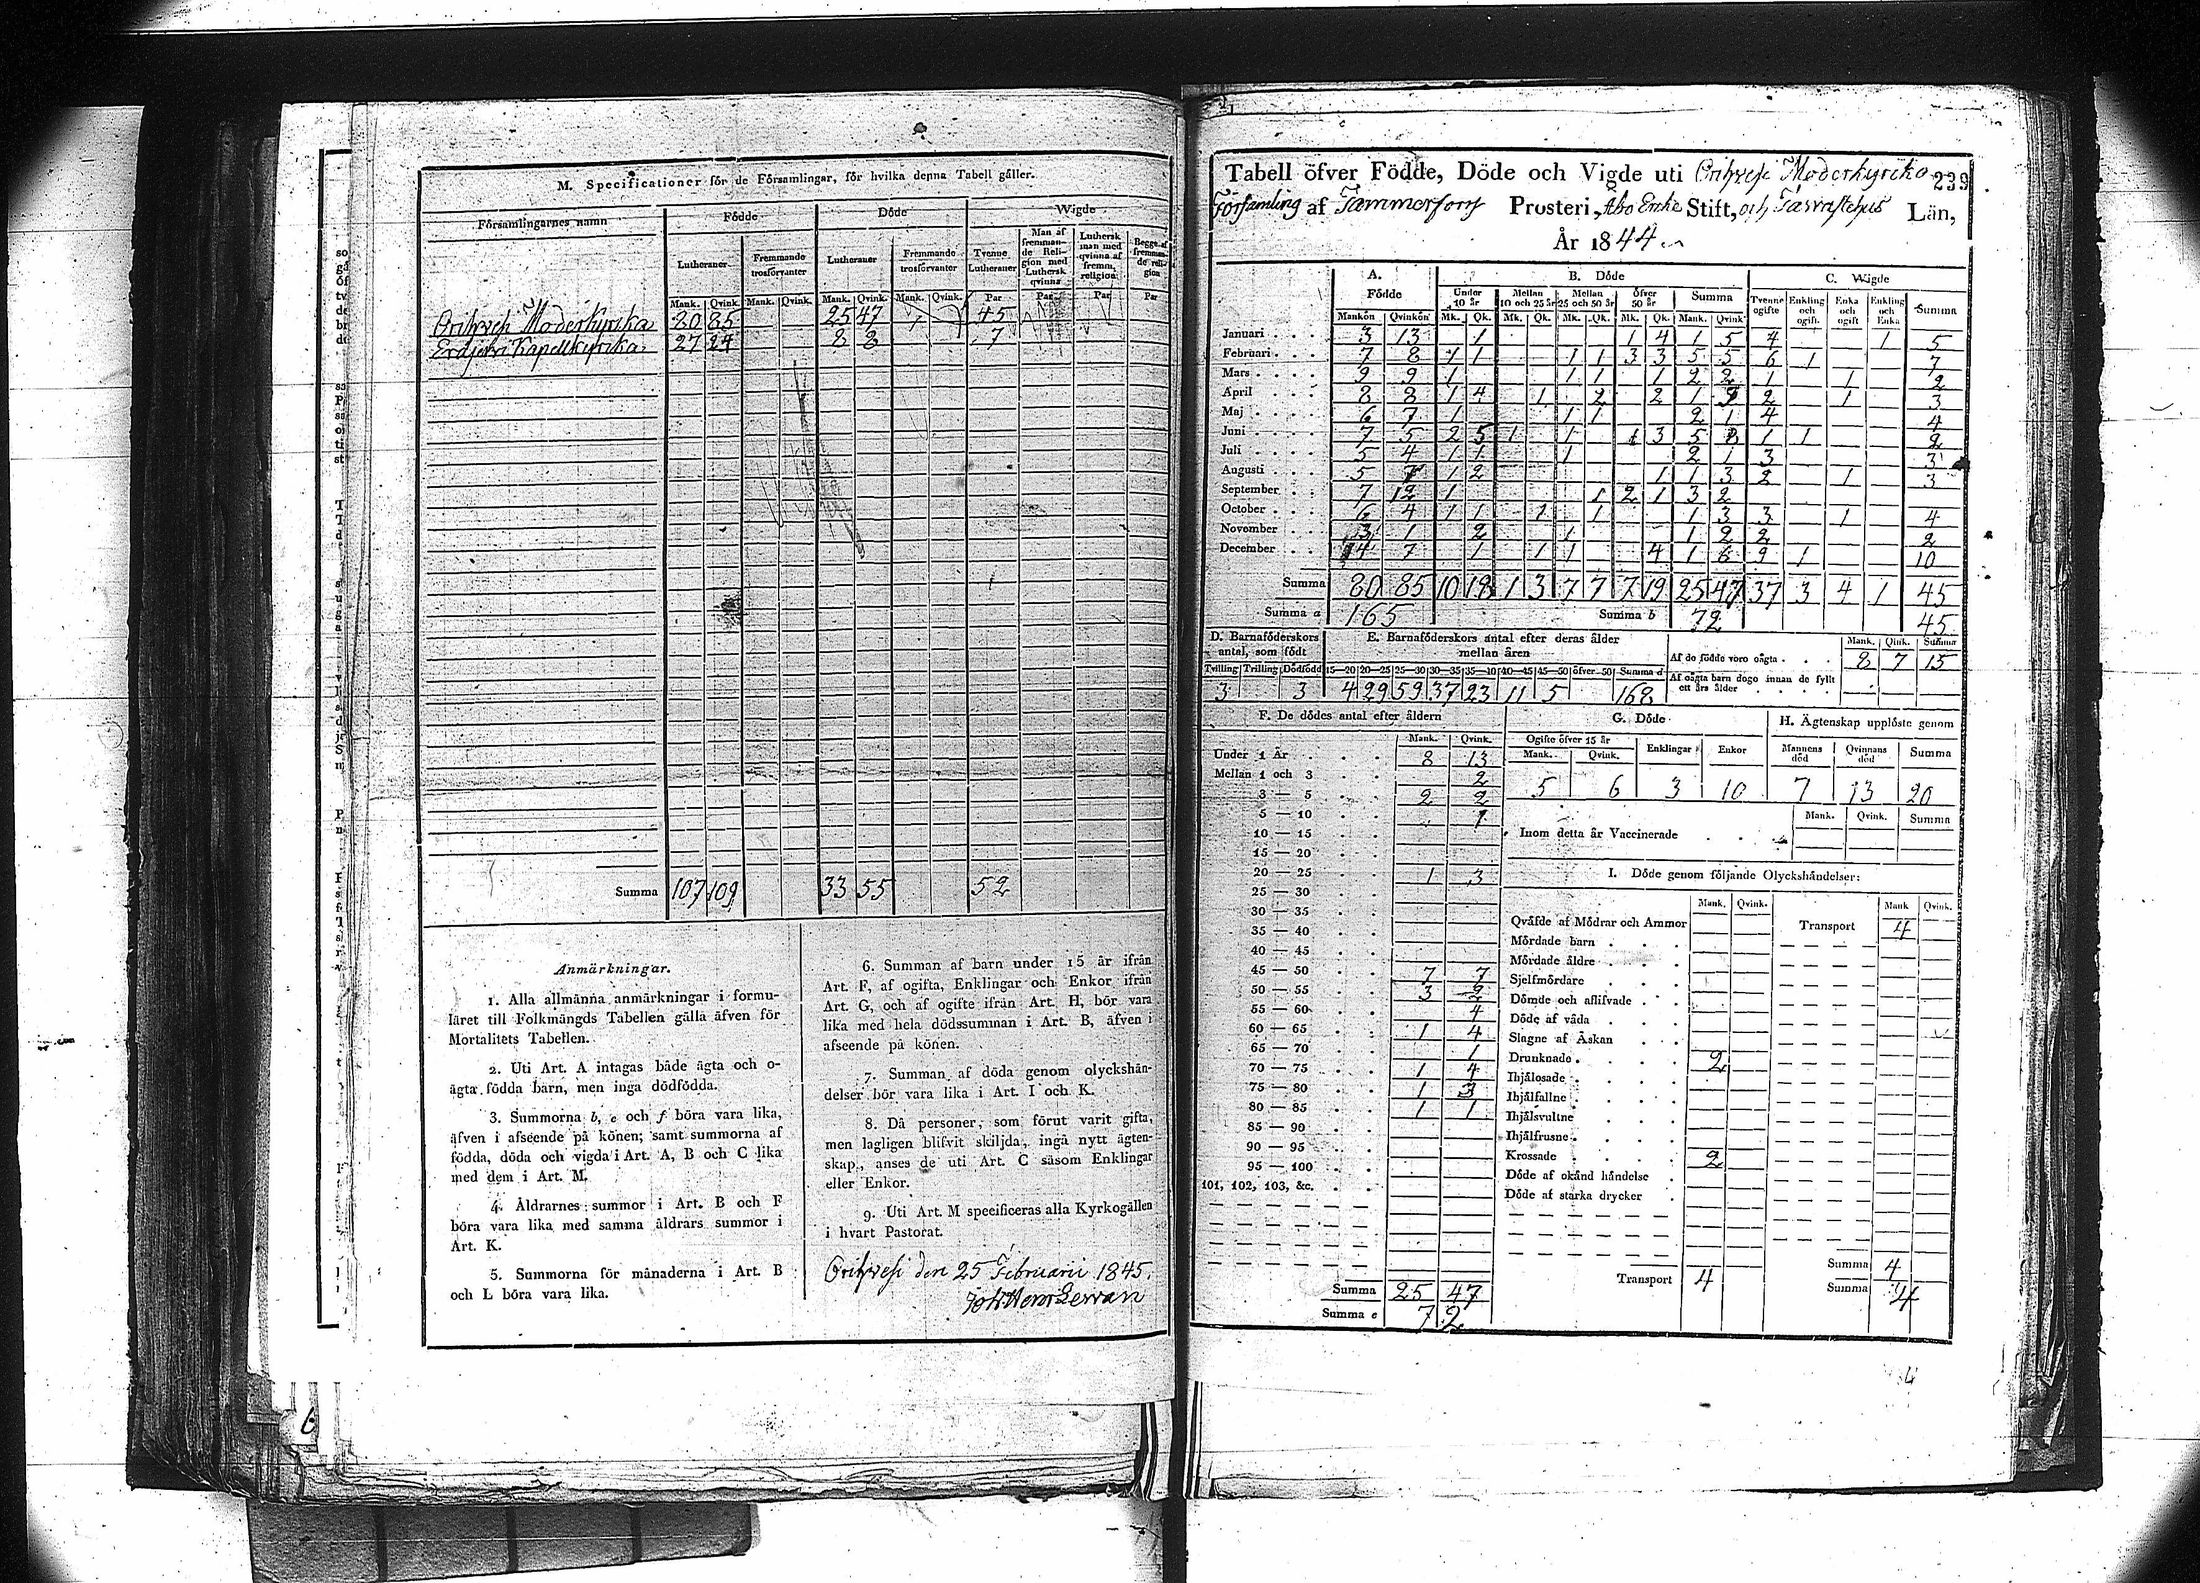 M. Specificationer för de Församlingar, för hvilka denna Tabell gäller.
Församlingarnes namn Födde Döde Wigde
Lutheraner Fremmande trosförvanter Lutheraner Fremmande trosförvanter Tvenne Lutheraner Man af fremmande Religion med Luthersk qvinna Luthersk man med qvinna af fremm. religion Begge af fremmande religion
Mank. Qvink. Mank. Qvink. Mank. Qvink. Mank. Qvink. Par Par Par Par
Orihvesi Moderkyrka 80 85 25 47 45
Eräjärvi Kapellkyrka 27 24 8 8 7
Summa 107 109 33 55 52
Anmärkningar.
1. Alla allmänna anmärkningar i formu-
läret till Folkmängds Tabellen gälla äfven för
Mortalitets Tabellen.
2. Uti Art. A intagas både ägta och o-
ägta födda barn, men inga dödfödda.
3. Summorna b, e och f böra vara lika,
äfven i afseende på könen; samt summorna af
födda, döda och vigda i Art. A, B och C lika
med dem i Art. M.
4. Åldrarnes summor i Art. B och F
böra vara lika med samma åldrars summor i
Art. K.
5. Summorna för månaderna i Art. B
och L böra vara lika.
6. Summan af barn under 15 år ifrån
Art. F, af ogifta, Enklingar och Enkor ifrån
Art. G, och af ogifte ifrån Art. H, bör vara
lika med hela dödssumman i Art. B, äfven i
afseende på könen.
7. Summan af döda genom olyckshän-
delser bör vara lika i Art. I och K.
8. Då personer, som förut varit gifta,
men lagligen blifvit skiljda, ingå nytt ägten-
skap, anses de uti Art. C såsom Enklingar
eller Enkor.
9. Uti Art. M specificeras alla Kyrkogällen
i hvart Pastorat.
Orihvesi den 25 Februarii 1845.
239
Tabell öfver Födde, Döde och Vigde uti Orihvesi Moderkyrko
Församling af Tammerfors Prosteri, Åbo Erke Stift, och Tavastehus Län,
År 1844
A. Födde B. Döde C. Wigde
Under 10 år Mellan 10 och 25 år Mellan 25 och 50 år Öfver 50 år Summa Tvenne ogifte Enkling och ogift Enka och ogift Enkling och Enka Summa
Mankön Qvinkön Mk. Qk. Mk. Qk. Mk. Qk. Mk. Qk. Mank. Qvink
Januari 3 13 1 1 4 1 5 4 1 5
Februari 7 8 1 1 1 1 3 3 5 5 6 1 7
Mars 9 9 1 1 1 1 2 2 1 1 2
April 8 8 1 4 1 2 2 1 9 2 1 3
Maj 6 7 1 1 1 2 1 4 4
Juni 7 5 2 5 1 1 1 3 5 8 1 1 2
Juli 5 4 1 1 1 2 1 3 3
Augusti 5 7 1 2 1 1 3 2 1 3
September 7 12 1 1 2 1 3 2
October 6 4 1 1 1 1 1 3 3 1 4
November 3 1 2 1 1 2 2 2
December 14 7 1 1 1 4 1 6 9 1 10
Summa 80 85 10 18 1 3 7 7 7 19 25 47 37 3 4 1 45
Summa a 165 Summa b 72 45
D. Barnaföderskors antal, som födt
Tvilling Trilling Dödfödd
3 3
E. Barnaföderskors antal efter deras ålder mellan åren
15—20 20—25 25—30 30—35 35—40 40—45 45—50 öfver 50 Summa d
4 29 59 37 23 11 5 168
Mank. Qink. Summa
Af de födde voro oägta 8 7 15
Af oägta barn dogo innan de fyllt ett års ålder
F. De dödes antal efter åldern
Mank. Qvink.
Under 1 År 8 13
Mellan 1 och 3 2
3 — 5 2 2
5 — 10 1
10 — 15
15 — 20
20 — 25 1 3
25 — 30
30 — 35
35 — 40
40 — 45
45 — 50 7 7
50 — 55 3 2
55 — 60 4
60 — 65 1 4
65 — 70 1
70 — 75 1 4
75 — 80 1 3
80 — 85 1 1
85 — 90
90 — 95
95 — 100
101, 102, 103, &c.
Summa 25 47
Summa e 72
G. Döde
Ogifte öfver 15 år Enklingar Enkor
Mank. Qvink.
5 6 3 10
H. Ägtenskap upplöste genom
Mannens död Qvinnans död Summa
7 13 20
Mank. Qvink. Summa
Inom detta år Vaccinerade
I. Döde genom följande Olyckshändelser:
Mank. Qvink. Mank Qvink.
Qväfde af Mödrar och Ammor Transport 4
Mördade barn
Mördade äldre
Sjelfmördare
Dömde och aflifvade
Döde af våda
Slagne af Åskan
Drunknade 2
Ihjälosade
Ihjälfallne
Ihjälsvultne
Ihjälfrusne
Krossade 2
Döde af okänd händelse
Döde af starka drycker
Summa 4
Transport 4 Summa 4